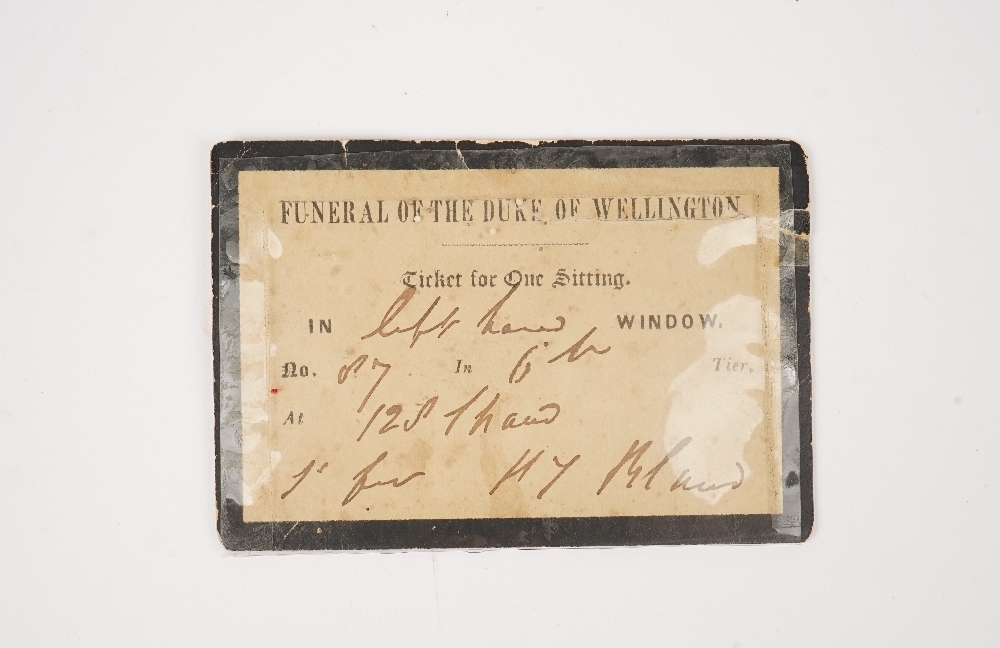 FUNERAL OF THE DUKE OF WELLINGTON
Ticket for One Sitting.
IN left hand WINDOW.
No. 87 In 6th Tier,
At 128 Strand
for HY Bland